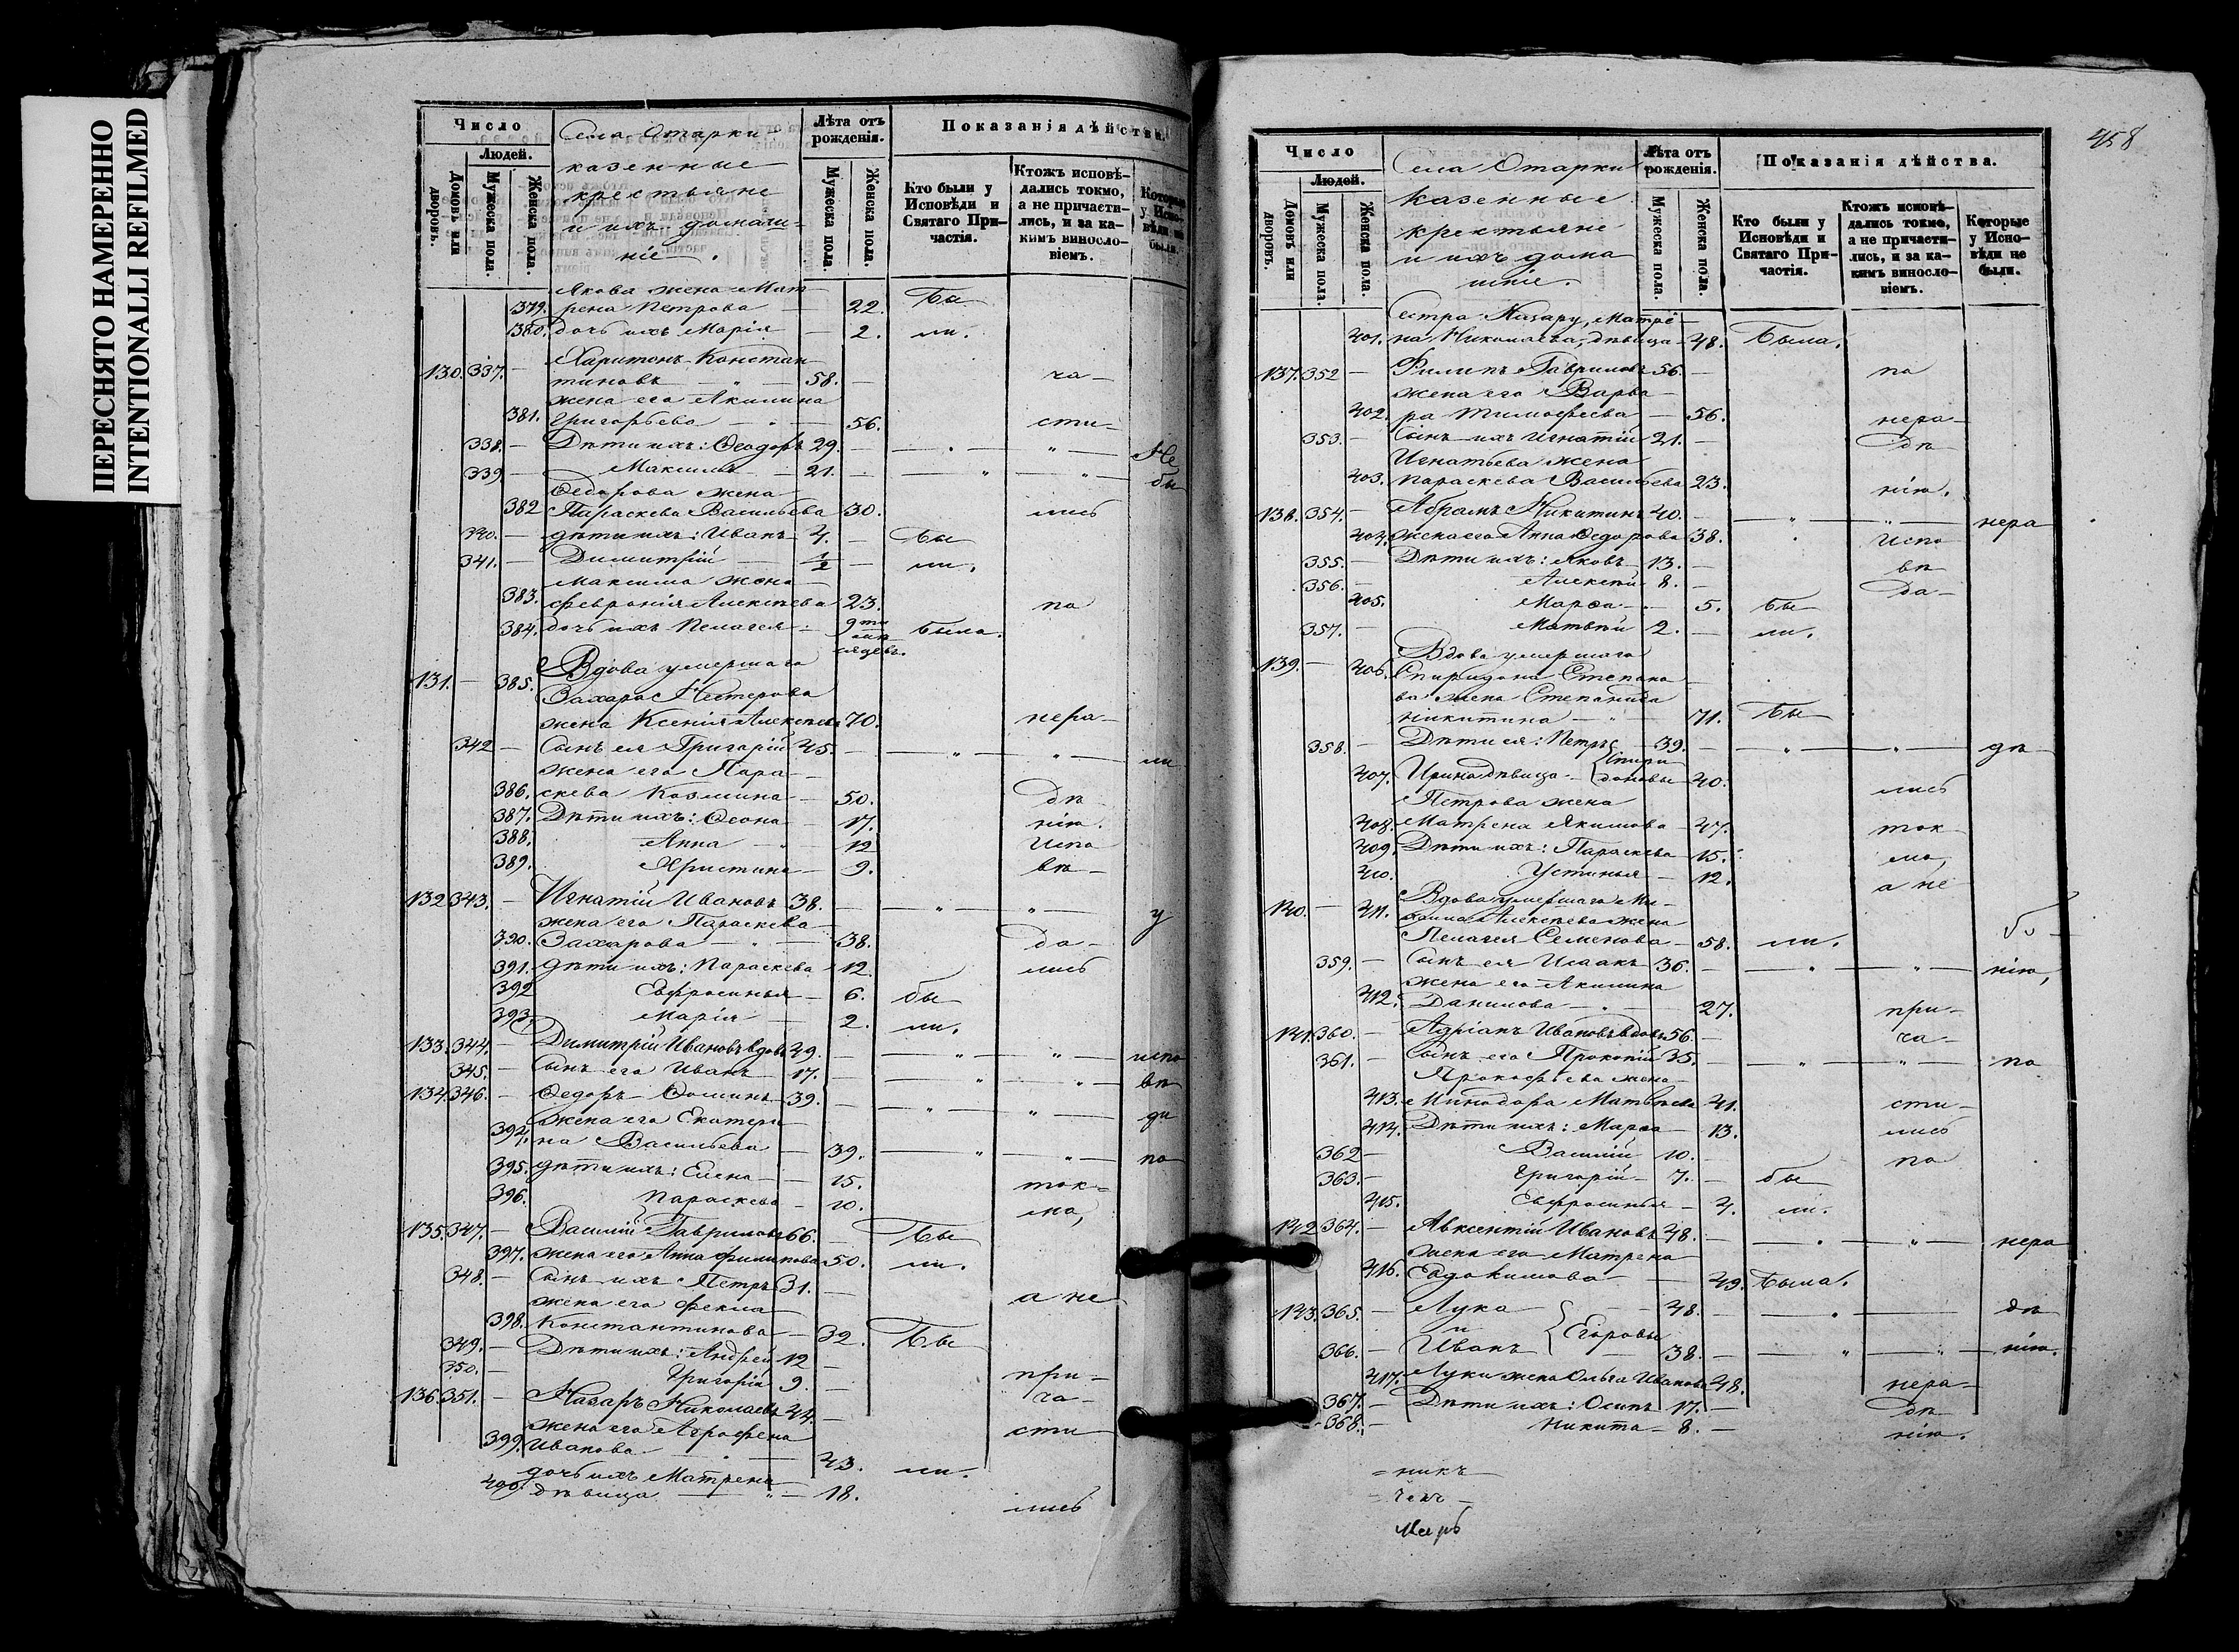 ПЕРЕСНЯТО НАМЕРЕННО
INTENTIONALLI REFILMED
Число
Людей.
Домовъ или дворовъ.
Мужеска пола.
Женска пола.
Села Отарки
казенные
крестьяне
и ихъ домаш-
ніе.
Лѣта отъ рожденія.
Мужеска пола.
Женска пола.
Показанія дѣйства.
Кто были у Исповѣди и Святаго При-частія.
Ктожъ исповѣ-дались токмо, а не причасти-лись, и за ка-кимъ винослo-віемъ.
Которые у Испо-вѣди не были.
Якова жена Мат-
379. рена Петрова — 22. Бы
380. дочь ихъ Марія — 2. ли.
130. 337. — Харитонъ Констан-
тиновъ — 58. — ча-
жена его Акилина
381. Григорьева — 56. сти-
338. — Дѣти ихъ: Ѳеодоръ 29. — Не
339 — Максимъ — 21. — бы
Ѳедорова жена
382 Параскева Васильева 30. лись
340. — дѣти ихъ: Иванъ 4. — Бы
341. — Димитрій — 1/2 — ли.
Максима жена
383. Февронія Алексѣева 23. по
384. дочь ихъ Пелагея 9ти мѣ-сяцевъ. Была.
131. — 385. Вдова умершаго
Захара Нестерова
жена Ксенія Алексѣева 70. нера-
342 — Сынъ ея Григорій 45. — ли
жена его Пара-
386. скева Козмина — 50. дѣ
387. Дѣти ихъ: Ѳеона — 17. нію.
388. Анна — 12 Испо
389. Христина — 9. вѣ-
132 343. — Игнатій Ивановъ 38. — у
жена его Параскева
390. Захарова — 38. да-
391. дѣти ихъ: Параскева 12. лись
392 Евфросинья — 6. бы
393. Марія — 2. ли.
133. 344. — Димитрій Ивановъ вдовъ 49. — испо
345. — Сынъ его Иванъ — 17. — вѣ
134. 346. — Ѳедоръ Ѳоминъ 39. — ди
жена его Екатери-
394. на Васильева — 39. — по
395. дѣти ихъ: Елена — 15. ток-
396. Параскева — 10. мо,
135. 347. — Василій Гавриловъ 66. — Бы
397. жена его Анна Филипова 50. ли.
348. — Сынъ ихъ Петръ 31. — а не
жена его Фекла
398. Константинова — 32. Бы
349. — Дѣти ихъ: Андрей 12 —
350. — Григорій 9. — при-
136. 351. — Назаръ Николаевъ 44. — ча-
жена его Агрофена
399. Иванова — 43. ли. сти
дочь ихъ Матрена
400. дѣвица — 18. лись
458
Число
Людей.
Домовъ или дворовъ.
Мужеска пола.
Женска пола.
Села Отарки
казенные
крестьяне
и ихъ дома
шніе.
Лѣта отъ рожденія.
Мужеска пола.
Женска пола.
Показанія дѣйства.
Кто были у Исповѣди и Святаго При-частія.
Ктожъ исповѣ-дались токмо, а не причасти-лись, и за ка-кимъ винослo-віемъ.
Которые у Испо-вѣди не были.
Сестра Назару, Матре-
401. на Николаева, дѣвица — 48. Была.
137. 352 — Филипъ Гавриловъ 56. — по
жена его Варва-
402. ра Тимофеева — 56. нера-
353. — Сынъ ихъ Игнатій 21. — дѣ
Игнатьева жена
403. Параскева Васильева 23. нію.
138. 354. — Абрамъ Никитинъ 40. — нера
404. жена его Анна Ѳедорова 38. Испо
355. — Дѣти ихъ: Яковъ 13. — вѣ
356. — Алексѣй 8. — да-
405. Марѳа — 5. Бы
357. — Матвѣй 2. — ли.
139. — 406. Вдова умершаго
Спиридона Степано-
ва жена Степанида
Никитина — 71. Бы
358. — Дѣти ея: Петръ — 39. — дѣ
407. Ирина дѣвица Спиридоновы 40. лись
Петрова жена
408. Матрена Якимова — 47. ток
409. Дѣти ихъ: Параскева 15. мо,
410. Устинья — 12. а не
140. — 411. Вдова умершаго Ми-
хаила Алексѣева жена
Пелагея Семенова — 58. ли.
359. — Сынъ ея Исаакъ 36. — нію,
жена его Акилина
412. Данилова — 27. при-
141. 360. — Адріанъ Ивановъ вдовъ 56. — ча-
361. — Сынъ его Прокопій 35. — по
Прокофьева жена
413. Минодора Матвѣева 41. сти-
414. Дѣти ихъ: Марѳа — 13. лись
362 — Василій 10. — по
363. — Григорій 7. — бы
415. Евфросинья — 4. ли.
142 364. — Авксентій Ивановъ 48. — нера
жена его Матрена
416. Евдокимова — 49. Была.
143. 365. — Лука — 48. — дѣ
и Егоровы
366. — Иванъ 38. — нію.
417. Луки жена Ольга Иванова 48. нера-
367. — Дѣти ихъ: Осипъ 17. — дѣ
368. — Никита 8. — нію.
никъ